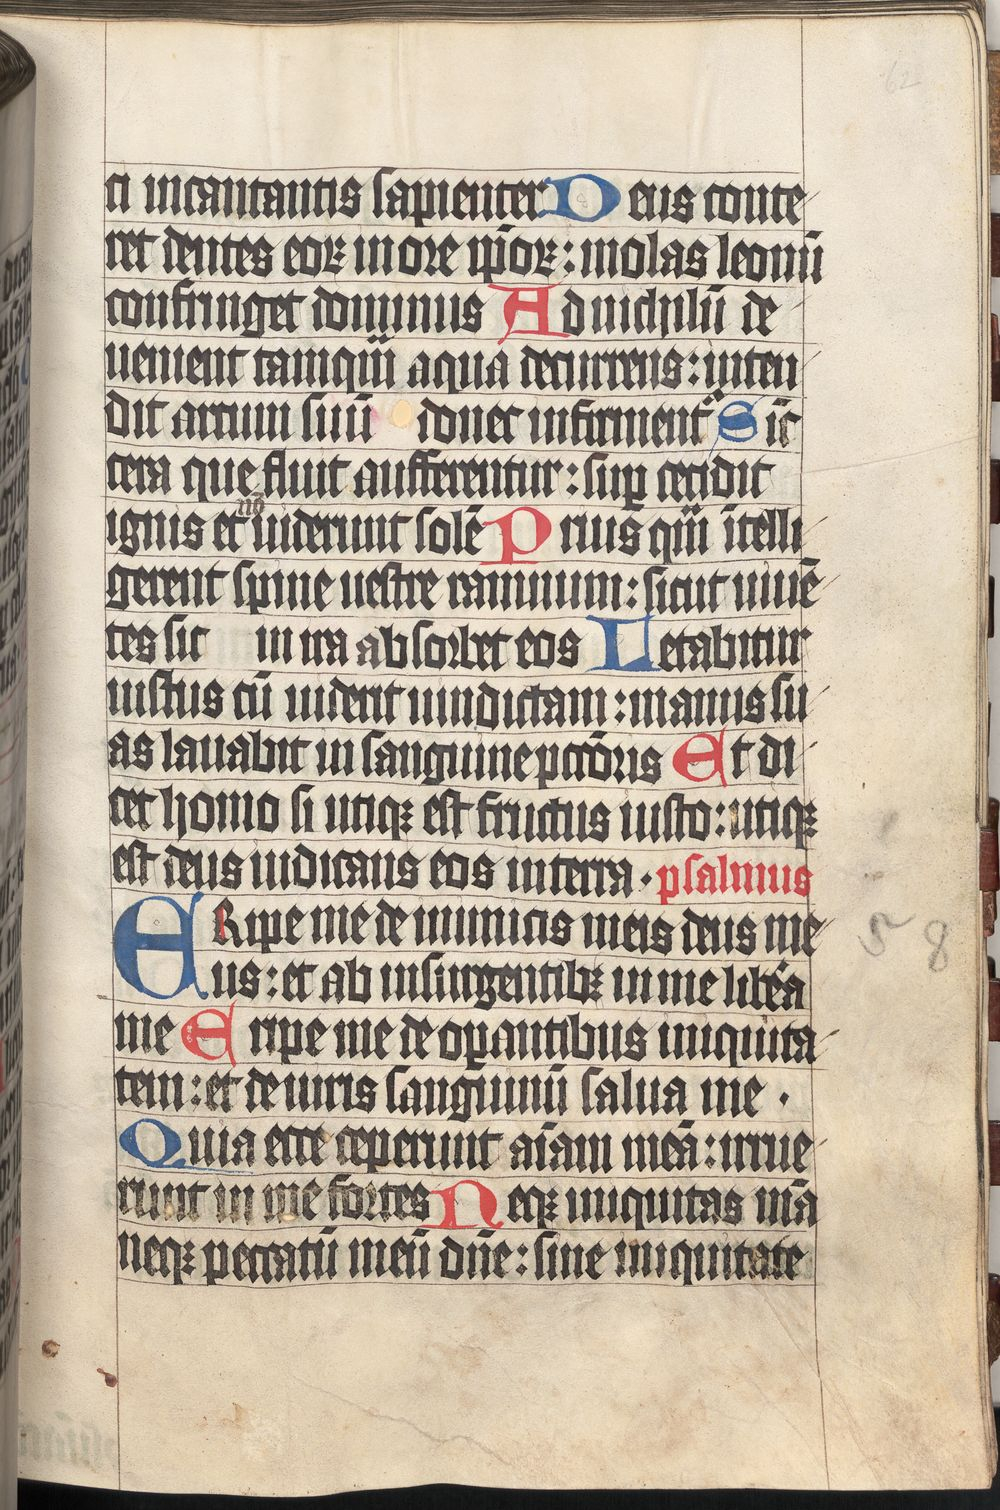 62
ci incantantis sapienter Deus conte
ret dentes eoꝝ in ore ip̄oꝝ: molas leonū
confringet dominus Ad nichilū de
uenient tamqͣm aqua decurrens: inten
dit arcum suū donec infirment᷑ Sic̄
cera que fluit aufferentur: suꝑ cecidit
ignis et nō uiderunt solē Prius qͣm ītelli
gerent spine uestre ramnum: sicut uiuē
tes sic in ira absorbet eos Letabitur
iustus cū uiderit uindictam: manus su
as lauabit in sanguine pctōris Et di
cet homo si utiqꝫ est fructus iusto: utiqꝫ
est deus iudicans eos in terra · psalmus
ERipe me de inimicis meis deus me
us: et ab insurgentibꝫ in me lib̕a
me Eripe me de oꝑantibus iniquita
tem: et de uiris sanguinū salua me ·
Quia ecce ceperunt aīam meā: irrue
runt in me fortes Neqꝫ iniquitas m̄a
neqꝫ peccatū meū dn̄e: sine iniquitate
58